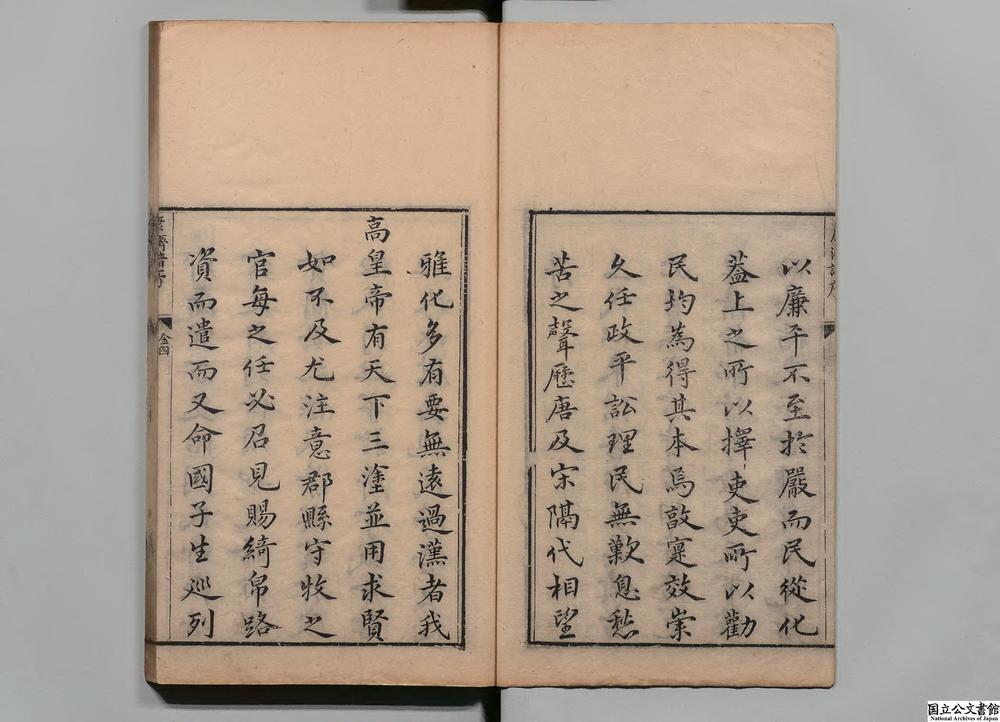 以廉平不至於嚴而民從化
蓋上之所以擇吏吏所以勸
民均為得其本焉故寔效崇
久任政平訟理民無歎息愁
苦之聲歷唐及宋隔代相望
雅化多有要無遠過漢者我
高皇帝有天下三塗並用求賢
如不及尤注意郡縣守牧之
官每之任必召見賜綺帛路
資而遣而又命國子生巡列
金四
国立公文書館
National Archives of Japan